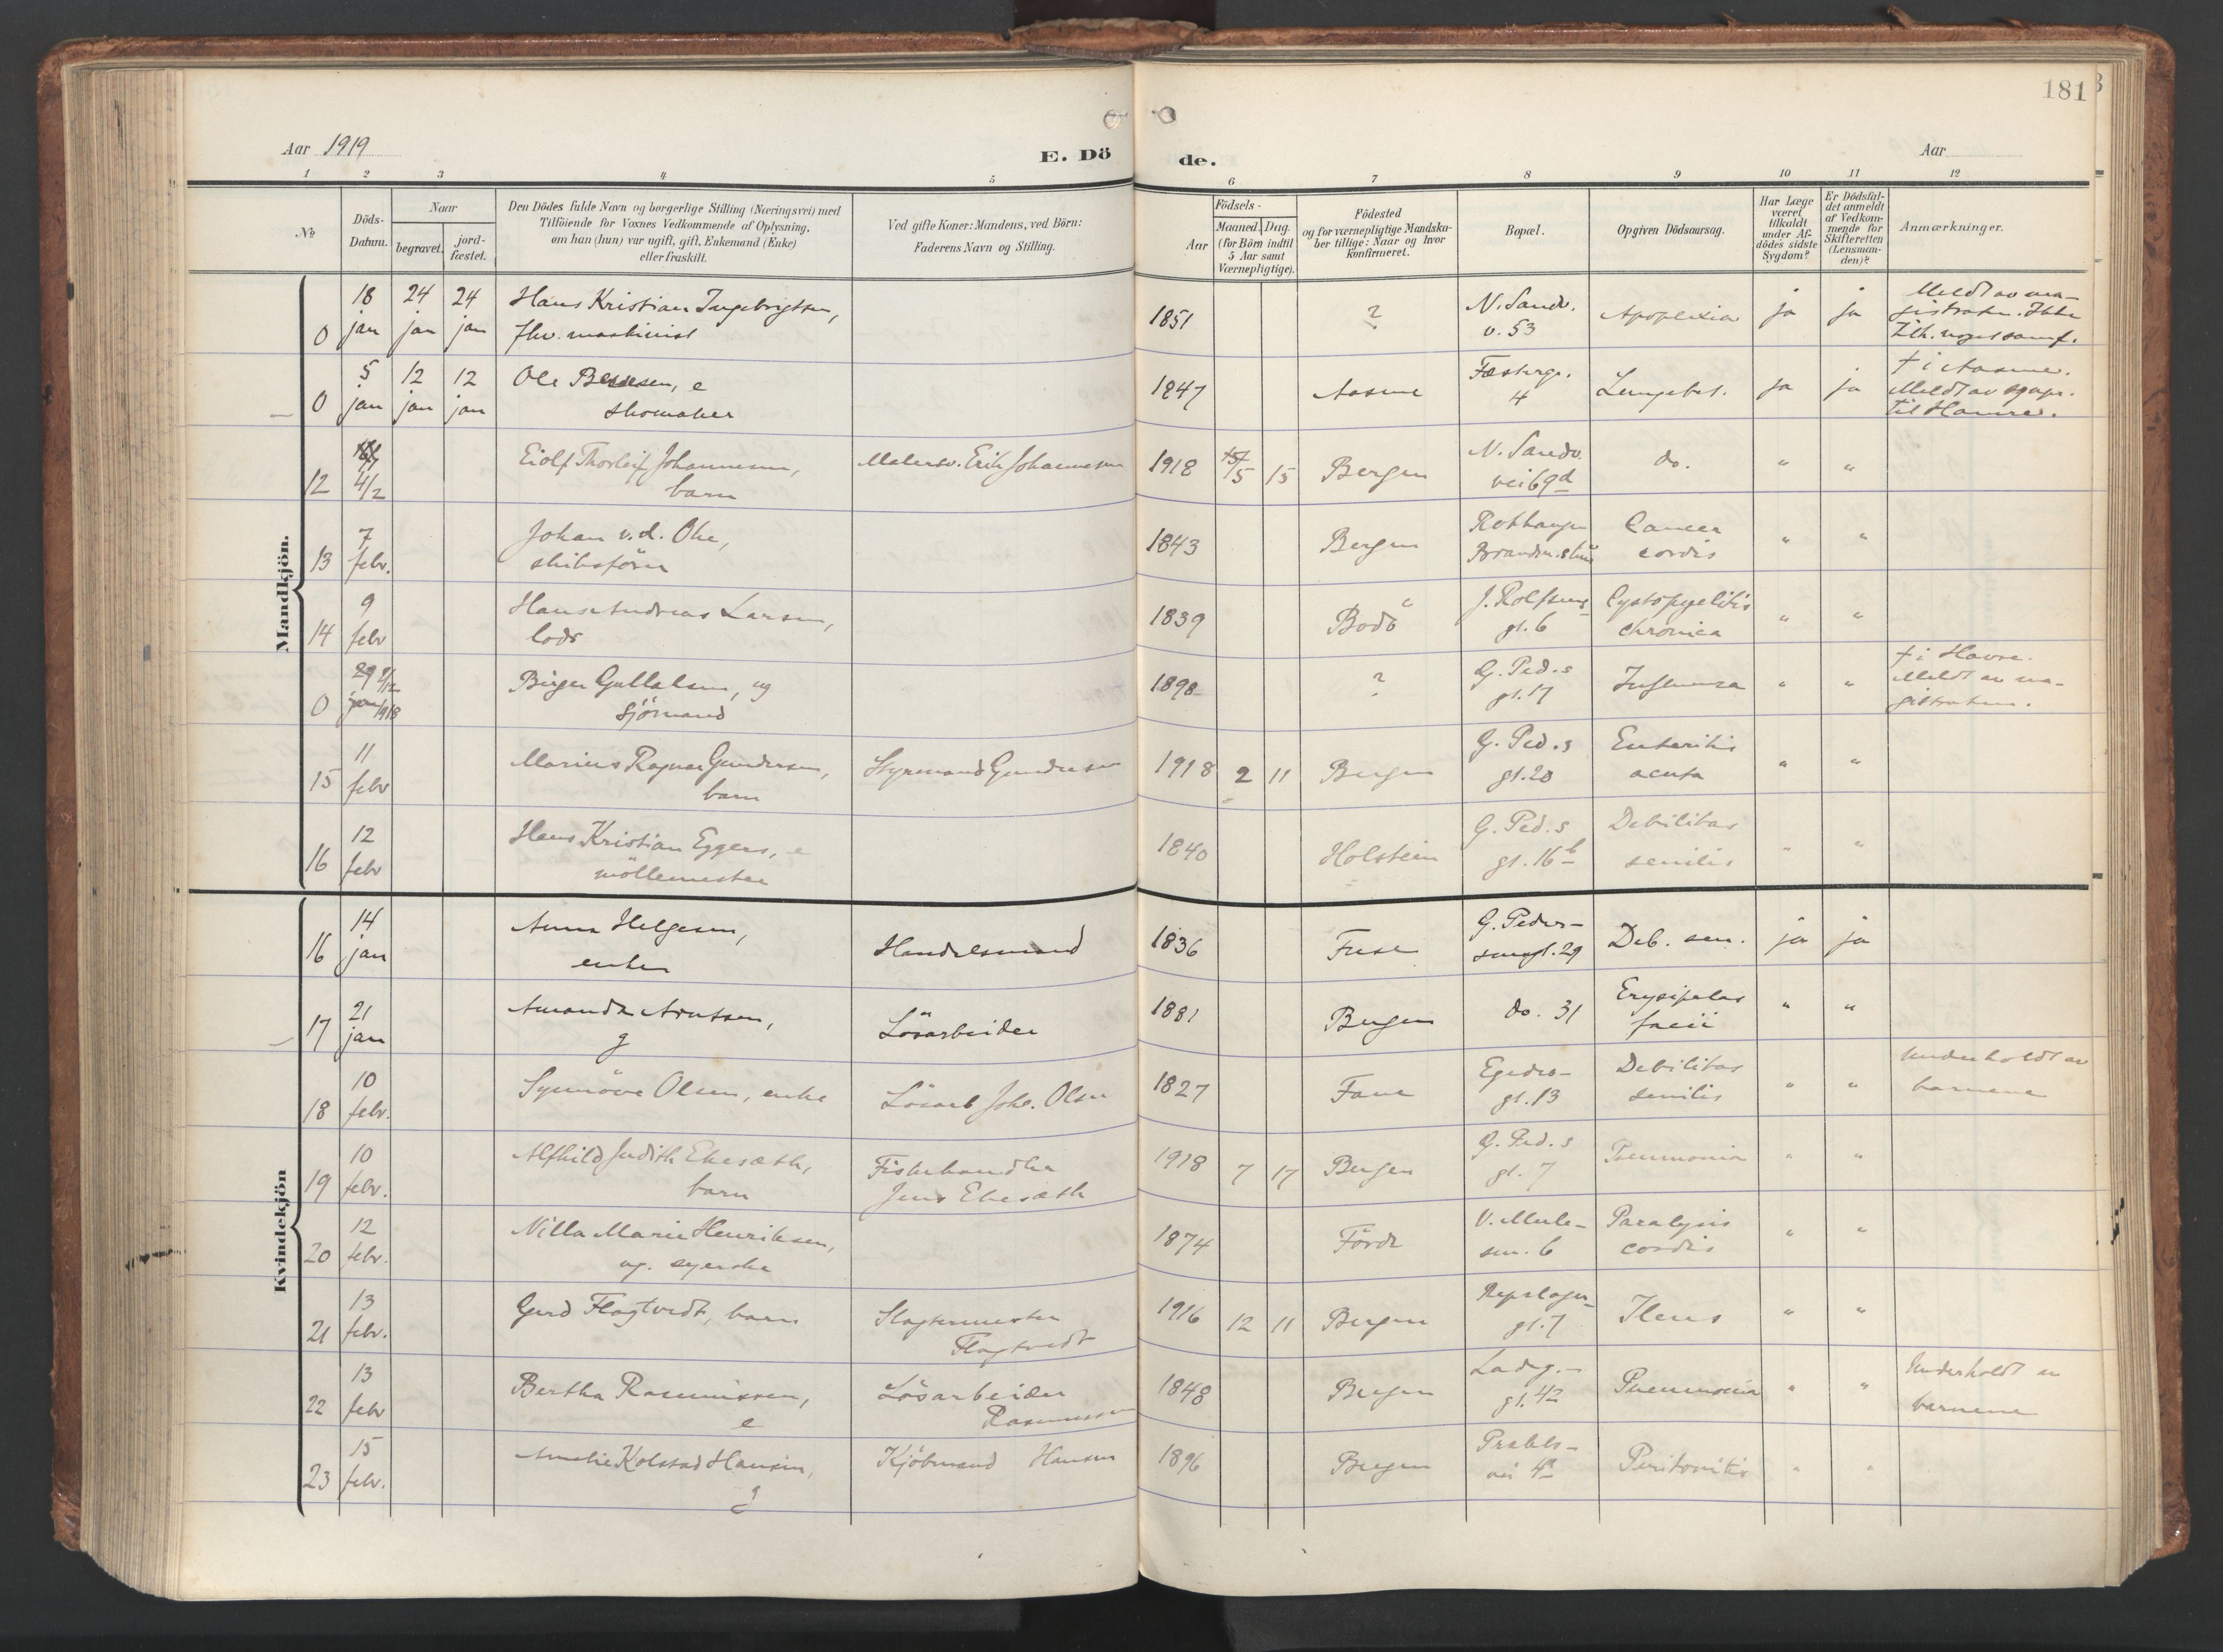 181
Aar 1919
E. Dö
de.
Aar
1 2 3 4 5 6 7 8 9 10 11 12
№
Döds-
Datum.
Naar
begravet.
jord-
fæstet.
Den Dödes fulde Navn og borgerlige Stilling (Næringsvei) med
Tilföiende for Voxnes Vedkommende af Oplysning,
om han (hun) var ugift, gift, Enkemand (Enke)
eller fraskilt.
Ved gifte Koner: Mandens, ved Börn:
Faderens Navn og Stilling.
Födsels-
Aar
Maaned. Dag.
(for Börn indtil
5 Aar samt
Værnepligtige).
Födested
og for værnepligtige Mandska-
ber tillige: Naar og hvor
konfirmeret.
Bopæl.
Opgiven Dödsaarsag.
Har Læge
været
tilkaldt
under Af-
dödes sidste
Sygdom?
Er Dödsfal-
det anmeldt
af Vedkom-
mende for
Skifteretten
(Lensman-
den)?
Anmærkninger.
Mandkjön.
0 18 jan 24 jan 24 jan Hans Kristian Ingebrigtsen, 1851 ? N. Sandv. Apoplexia ja ja Meldt av ma-
fhv. maskinist v. 53 gistraten. Ikke
tilh. noget samf.
0 5 jan 12 jan 12 jan Ole e 1847 Fæsterga. Lungebet. ja ja
skomaker 4 Meldt av
12 4/2 Eiolf Thorleif Johannesen, Malersv. Erik Johannesen 1918 5 15 Bergen N. Sandv. do. " "
barn vei 69d
13 7 febr. Johan v.d. Ohe, 1843 Bergen Cancer " "
skibsförer cordis
14 9 febr Hans Andreas Larsen, 1839 Bodö J. Rolfsens Cystopyelitis " "
lods gt. 6 chronica
0 1918 Birger Gullaksen, ug ? 1898 G. Ped.s Influenza " " † i Havre.
sjömand gt. 17 Meldt av ma-
gistraten.
15 11 febr Marius Ragnar Gundersen, Styrmand Gundersen 1918 2 11 Bergen G. Ped.s Enteritis " "
barn gt. 20 acuta
16 12 febr Hans Kristian Eggers, e 1840 Holstein G. Ped.s Debilitas " "
möllemester gt. 16b senilis
Kvindekjön
16 14 jan Anna Helgesen, Handelsmand 1836 Fuse G. Peders- Deb. sen. ja ja
enke sensgt. 29
17 21 jan Amanda Arntsen, Lösarbeider 1881 Bergen do. 31 Erysipelas " "
g facii
18 10 febr. Synnöve Olsen, enke Lösarb Johs. Olsen 1827 Fane Egedes- Debilitas " " Underholdt av
gt. 13 senilis barnene
19 10 febr. Alfhild Judith Ekesæth, Fiskehandler 1918 7 17 Bergen G. Ped.s Pneumonia " "
barn Jens Ekesæth gt. 7
20 12 febr. Nilla Marie Henriksen, 1874 Förde V. Mule- Paralysis " "
ug. syerske sm. 6 cordis
21 13 febr. Gerd Flagtvedt, barn Slagtermester 1916 12 11 Bergen Repslager- Ileus " "
Flagtvedt gt. 7
22 13 febr Bertha Rasmussen, Lösarbeider 1848 Bergen Ladeg.- Pneumonia " " Underholdt av
e Rasmussen gt. 42 barnene
23 15 febr. Amelie Kolstad Hansen, Kjöbmand Hansen 1896 Bergen Peritonitis " "
g vei 4a